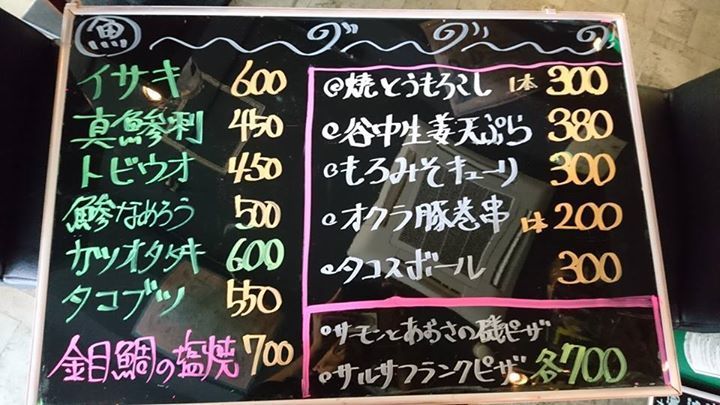 魚
イサキ 600
真鯵刺 450
トビウオ 450
鯵なめろう 500
カツオタタキ 600
タコブツ 550
金目鯛の塩焼 700
焼とうもろこし 1本 300
谷中生姜天ぷら 380
もろみそキューリ 300
オクラ豚巻串 1本 200
タコスボール 300
サーモンとあおさの磯ピザ
サルサフランクピザ 各700